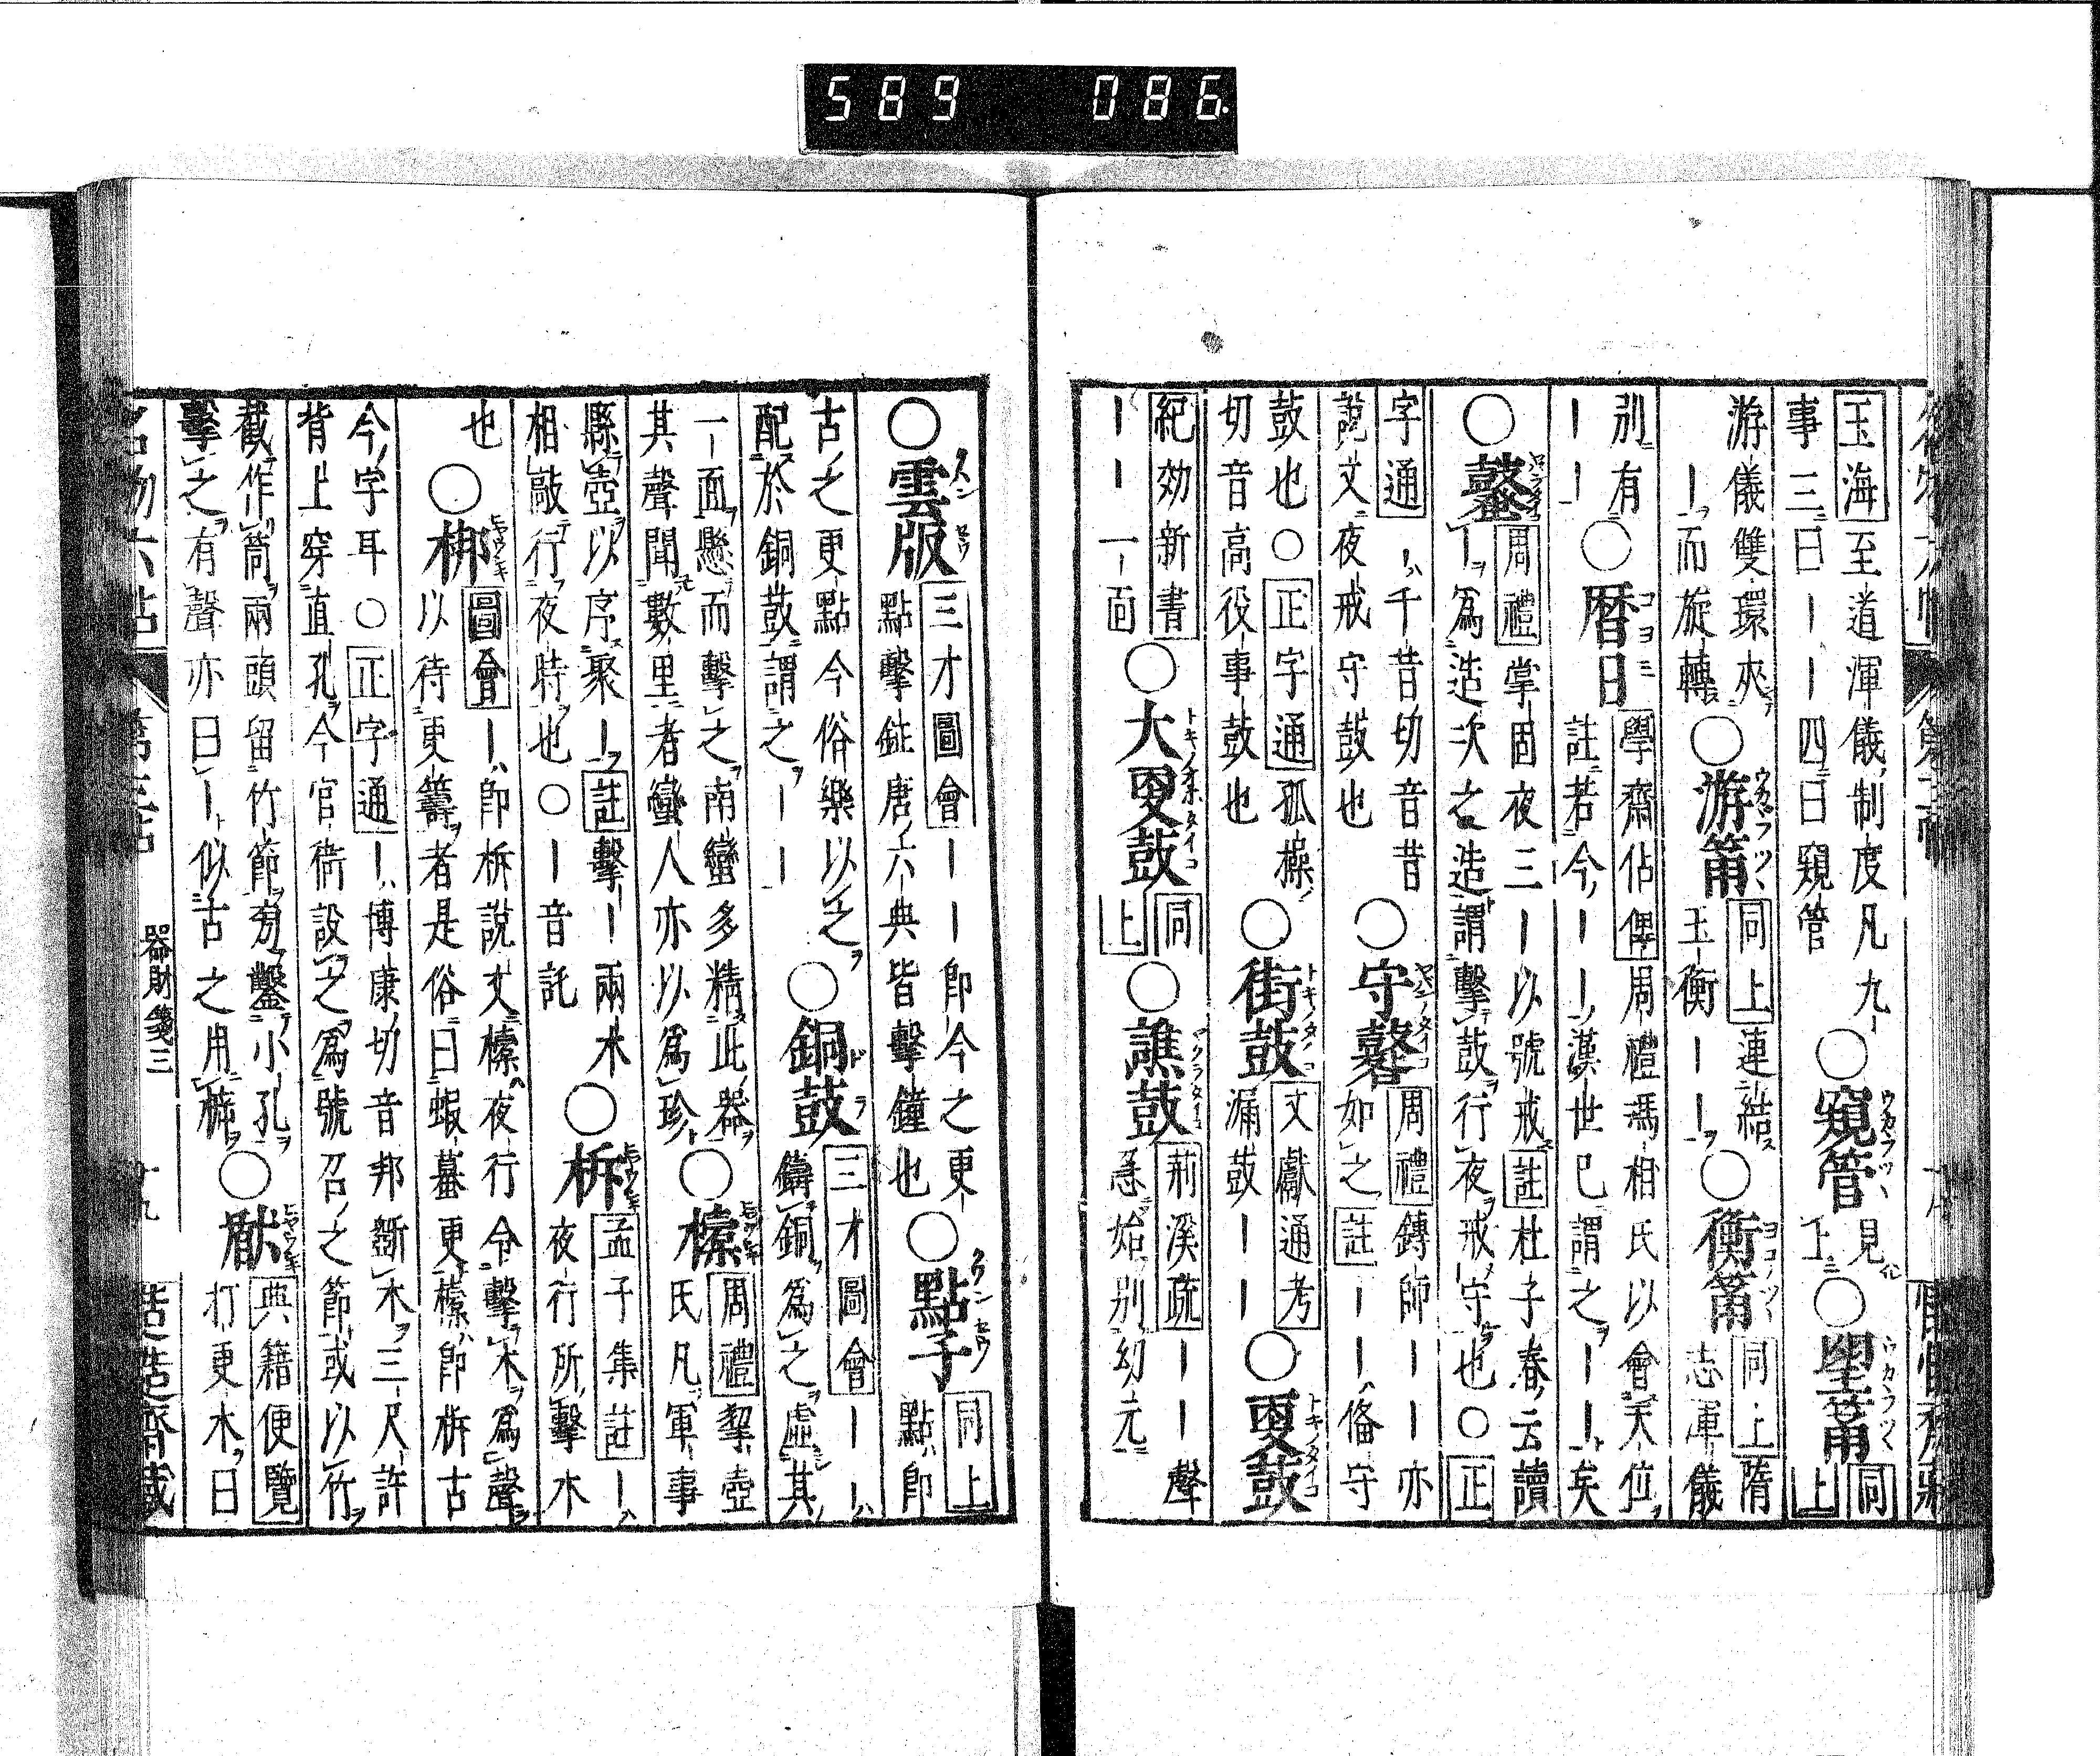 589 086
玉海至道渾儀制度凡九
事三曰――四曰窺管
○窺管 見上 ○望筩 同上
游儀雙環夾
―而旋轉
○游筩 同上連結
玉衡――
○衡筩 同上隋
志渾儀
別有
――
○暦日 學齋佔僤周禮馮相氏以會天位
註若今――漢世已謂之――矣
○鼜 周禮掌固夜三―以號戒註杜子春云讀
―爲造次之造謂擊鼓行夜戒守也○正
字通―千昔切音昔
說文夜戒守鼓也
○守鼜 周禮鎛師――亦
如之註――備守
鼓也○正字通孤橾
切音高役事鼓也
○街鼓 文獻通考
漏鼓――
○更鼓
紀効新書
――一面
○大更鼓 同上
○譙鼓 荊溪疏――聲
急始別幼元
○雲版 三才圖會――卽今之更
點擊鉦唐六典皆擊鐘也
○點子 同上
點卽
古之更點今俗樂以之
配於銅鼓謂之――
○銅鼓 三才圖會――
鑄銅爲之虛其
一面懸而擊之南蠻多精此器
其聲聞數里者蠻人亦以爲珍
○㯓 周禮挈壺
氏凡軍事
縣壺以序聚―註擊―兩木
相敲行夜時也○―音託
○柝 孟子集註―
夜行所擊木
也
○梆 圖會―卽柝說文㯓夜行令擊木爲聲
以待更籌者是俗曰蝦蟇更㯓卽柝古
今字耳○正字通―博康切音邦斵木三尺許
背上穿直孔今官衙設之爲號召之節或以竹
截作筒兩頭留竹節旁鑿小孔
擊之有聲亦曰―似古之用
典籍便覽
打更木曰
器財箋三